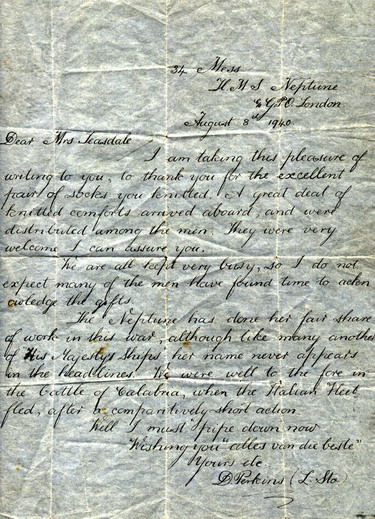 34 Mess
H.M.S Neptune
c/o G.P.O. London
August 8th 1940
Dear Mrs Teasdale
I am taking this pleasure of
writing to you, to thank you for the excellent
pair of socks you knitted. A great deal of
knitted comforts arrived aboard, and were
distributed among the men. They were very
welcome I can assure you.
We are all kept very busy, so I do not
expect many of the men have found time to ackn
owledge the gifts.
The Neptune has done her fair share
of work in this war, although like many another
of His Majestys ships her name never appears
in the headlines. We were well to the fore in
the battle of Calabria, when the Italian Fleet
fled, after a comparitively short action.
Well I must pipe down now
Wishing you "alles van die beste"
Yours etc
D. Perkins (L. Sto)